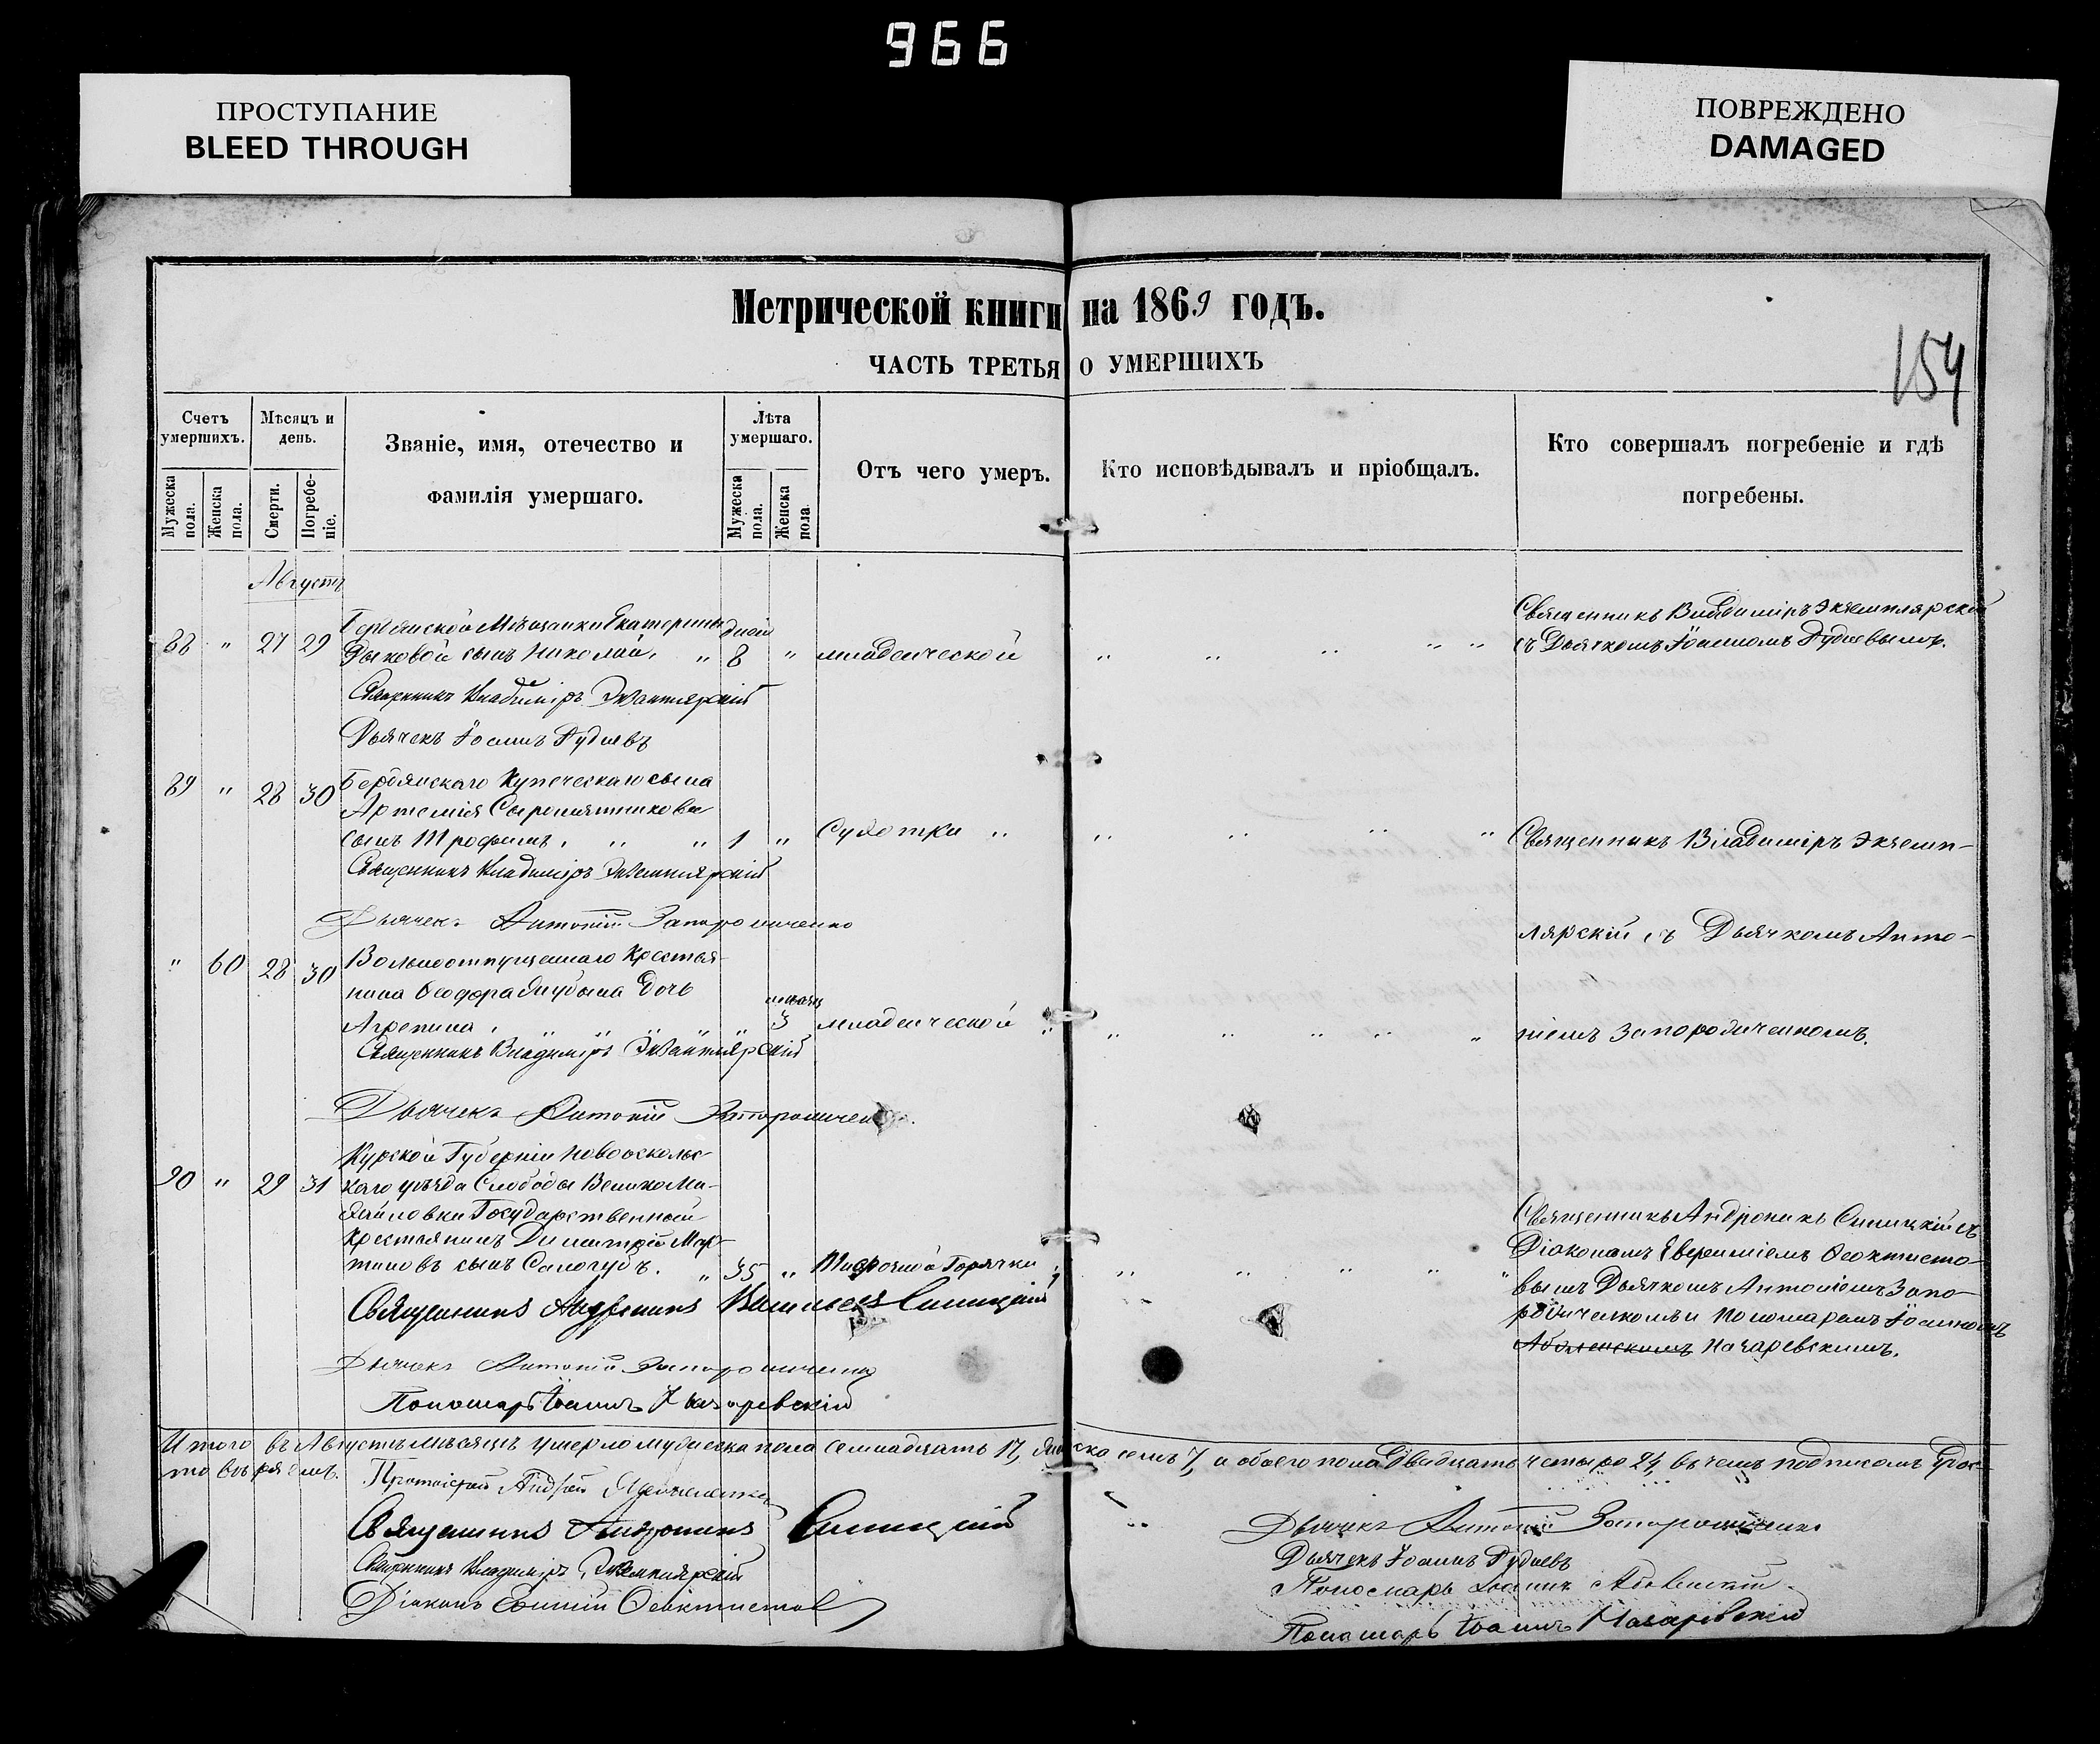 966
ПРОСТУПАНИЕ
BLEED THROUGH
ПОВРЕЖДЕНО
DAMAGED
Метрической книги на 1869 годъ.
ЧАСТЬ ТРЕТЬЯ О УМЕРШИХЪ
154
Счетъ умершихъ.
Мужеска пола.
Женска пола.
Мѣсяцъ и день.
Смерти.
Погребеніе.
Званіе, имя, отечество и
фамилія умершаго.
Лѣта умершаго.
Мужеска пола.
Женска пола.
Отъ чего умеръ.
Кто исповѣдывалъ и пріобщалъ.
Кто совершалъ погребеніе и гдѣ
погребены.
Августъ
Бердянской Мѣщанки Екатерины дней Священникъ Владиміръ Экземплярскій
88 " 27 29 сынъ Николай. " 8 " младенческой съ Дьячкомъ Іоанномъ
Священникъ Владиміръ Экземплярскій
Дьячекъ Іоаннъ
89 " 28 30 Бердянскаго Купеческаго сына
Артемія Сыромятникова
сынъ Трофимъ. " " 1 " Сухотки " Священникъ Владиміръ Экземп-
Священникъ Владиміръ Экземплярскій
Дьячекъ Антоній лярскій съ Дьячкомъ Анто-
" 60 28 30 Вольноотпущеннаго Крестья-
нина Феодора дочь
Агрепина. " " " " " мѣсяц 3 младенческой " ніемъ
Священникъ Владиміръ Экземплярскій
Дьячекъ Антоній
Курской Губерніи Новооскольс-
90 " 29 31 каго уѣзда Слободы Великоми-
хайловки Государственный
Крестьянинъ Димитрій Мар-
тиновъ сынъ Сапогубъ. " 35 " Горячки
Священникъ Андроникъ Синицкій съ
Діакономъ Феоктисто-
вымъ Дьячкомъ Антоніемъ Запо-
и Пономаремъ Іоанномъ
Назаревскимъ.
Священникъ Андроникъ Синицкій
Дьячекъ Антоній
Пономарь Іоаннъ Назаревскій
Итого въ Августѣ мѣсяцѣ умерло мужеска пола семнадцать 17, женска семь 7, а обоего пола двадцать четыре 24, въ чемъ подписомъ удос-
товѣряемъ.
Протоіерей Андрей
Священникъ Андроникъ Синицкій
Священникъ Владиміръ Экземплярскій
Діаконъ Феоктистовъ
Дьячекъ Антоній
Дьячекъ Іоаннъ
Пономарь Іоаннъ
Пономарь Іоаннъ Назаревскій